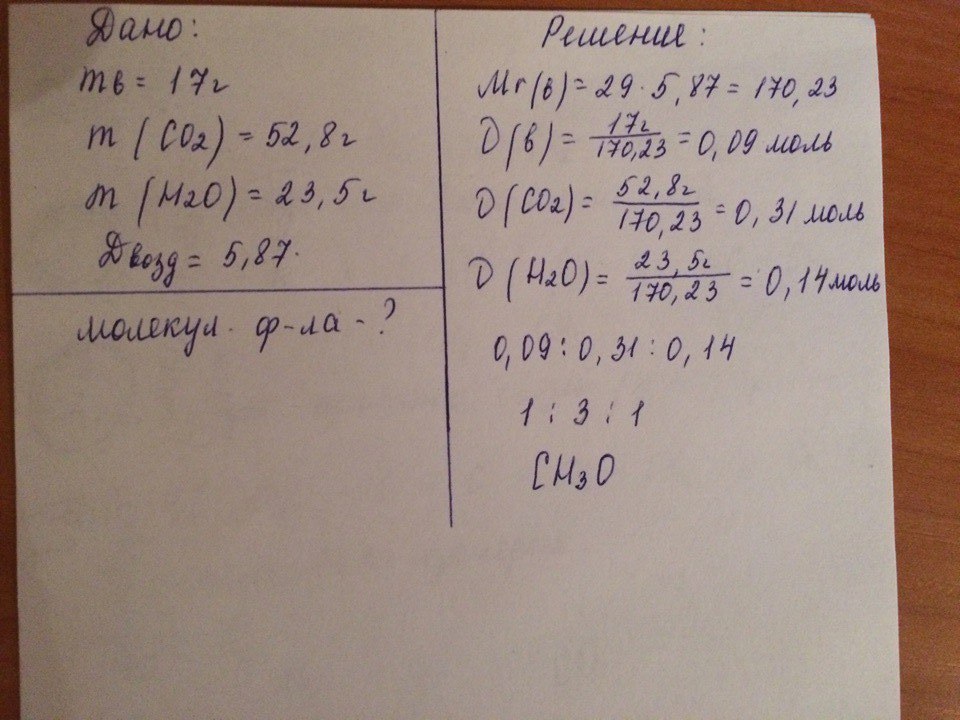 Дано:
mв = 17г
m (CO2) = 52,8г
m (H2O) = 23,5г
Двозд = 5,87.
молекул. ф-ла - ?
Решение:
Mr(в) = 29 · 5,87 = 170,23
D(в) = 17г / 170,23 = 0,09 моль
D(CO2) = 52,8г / 170,23 = 0,31 моль
D(H2O) = 23,5г / 170,23 = 0,14 моль
0,09 : 0,31 : 0,14
1 : 3 : 1
CH3O